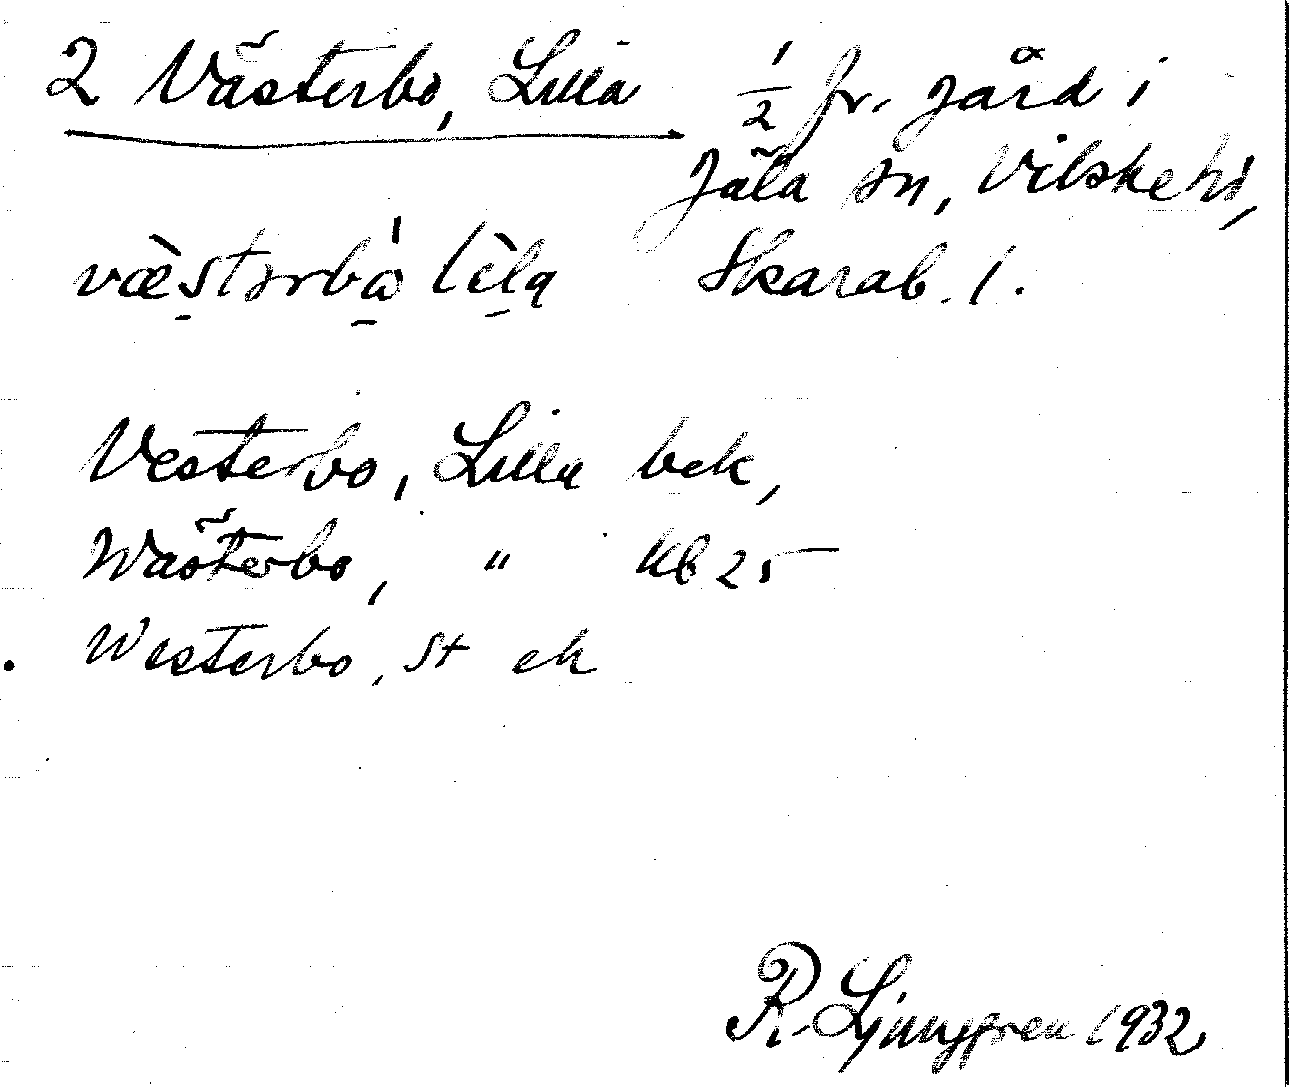 2 Västerbo, Lilla ½ fr. gård i
Jäla sn, Vilske hd,
væ̀stərbὼ lìla Skarab. l.
Vesterbo, Lilla bek,
Wästerbo, " kb 25
Westerbo, St ek
R. Ljunggren 1932